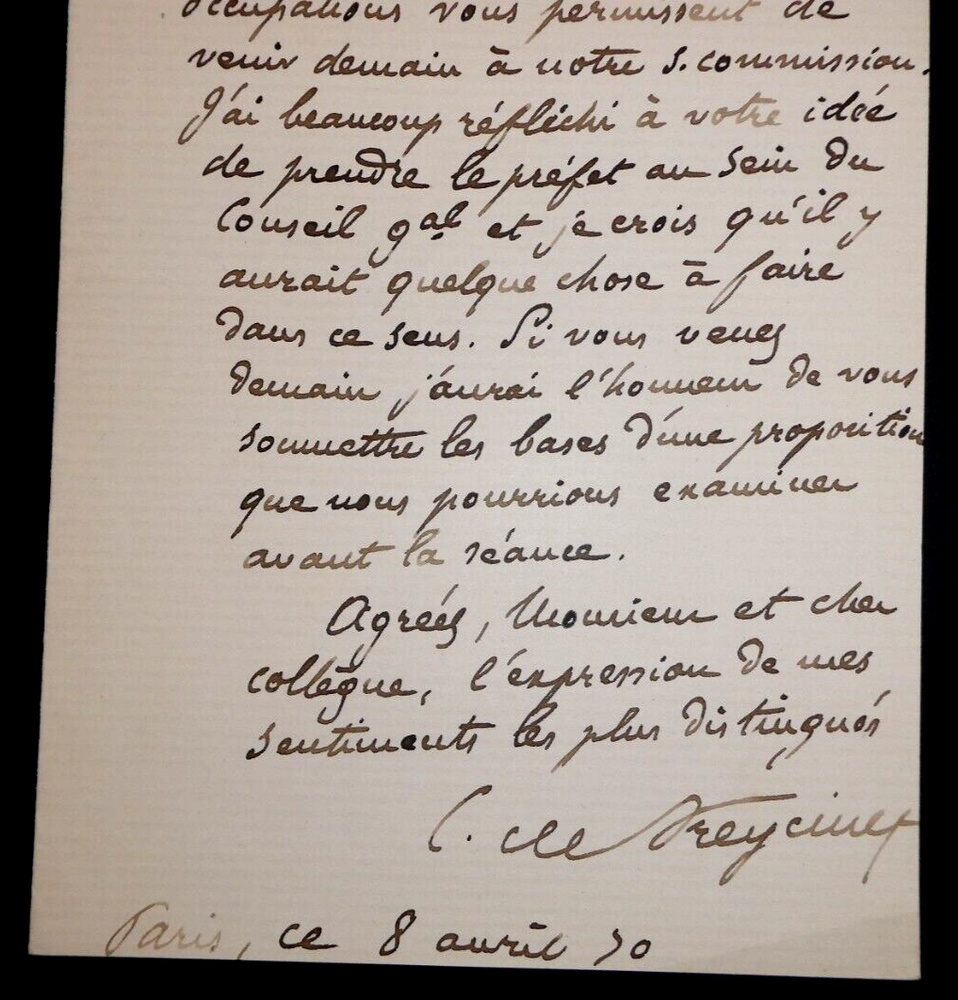 occupations vous permissent de
venir demain à notre s. commission.
J'ai beaucoup réfléchi à votre idée
de prendre le préfet au sein du
Conseil gal. et je crois qu'il y
aurait quelque chose à faire
dans ce sens. Si vous venez
demain j'aurai l'honneur de vous
soumettre les bases d'une proposition
que nous pourrions examiner
avant la séance.
Agréez, Monsieur et cher
collègue, l'expression de mes
sentiments les plus distingués
C. de Freycinet
Paris, ce 8 avril 70